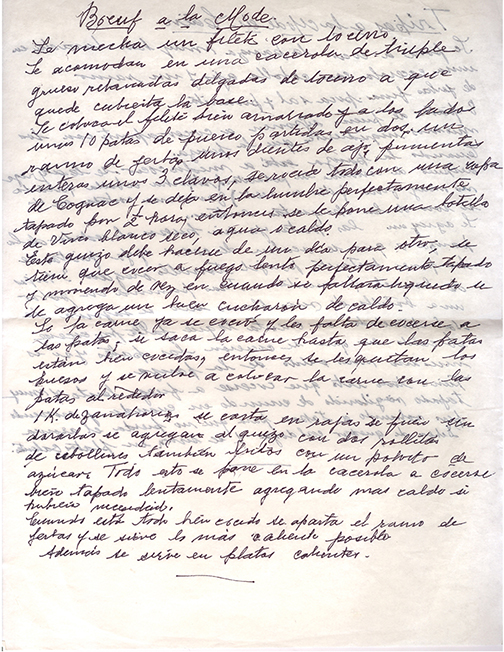 Boeuf a la Mode
Se mecha un filete con tocino.
Se acomodan en una cacerola de triple
grueso rebanadas delgadas de tocino a que
quede cubierta la base.
Se coloca el filete bien amarrado y a los lados
unas 10 patas de puerco partidas en dos, un
ramo de yerbas, unos dientes de ajo, pimientas
enteras unos 3 clavos, se rocia todo con una copa
de Cognac y se deja en la lumbre perfectamente
tapado por 2 horas, entonces se le pone una botella
de Vino blanco seco, agua o caldo.
Este guizo debe hacerse de un dia para otro, se
tiene que cocer a fuego lento perfectamente tapado
y moviendo de vez en cuando si le faltara liquido se
le agrega un buen cucharón de caldo.
Si la carne ya se coció y les falta de cocerse a
las patas, se saca la carne hasta que las patas
están bien cocidas, entonces se les quitan los
huesos y se vuelve a colocar la carne con las
patas alrededor
1 K de zanahorias se corta en rajas se frien un
doraditas se agregan al guizo con dos rollitos
de cebollines tambien fritos con un poquito de
azúcar. Todo esto se pone en la cacerola a cocerse
bien tapado lentamente agregando mas caldo si
hubiera necesidad.
Cuando está todo bien cocido se aparta el ramo de
yerbas y se sirve lo más caliente posible
Además se sirve en platos calientes.